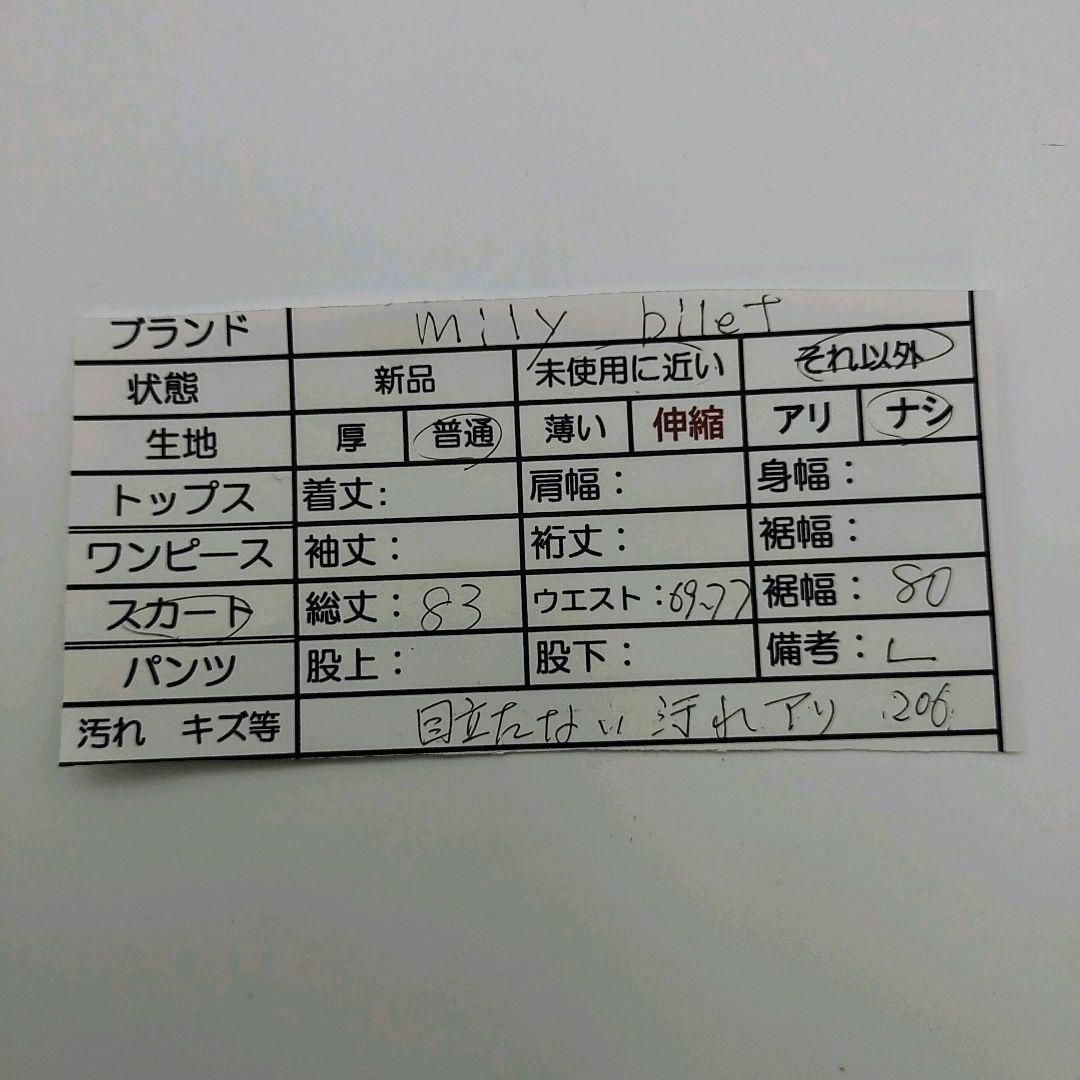 ブランド mily bilet
状態 新品 未使用に近い それ以外
生地 厚 普通 薄い 伸縮 アリ ナシ
トップス 着丈: 肩幅: 身幅:
ワンピース 袖丈: 裄丈: 裾幅:
スカート 総丈: 83 ウエスト:69~77 裾幅: 80
パンツ 股上: 股下: 備考: L
汚れ キズ等 目立たない汚れアリ .206.